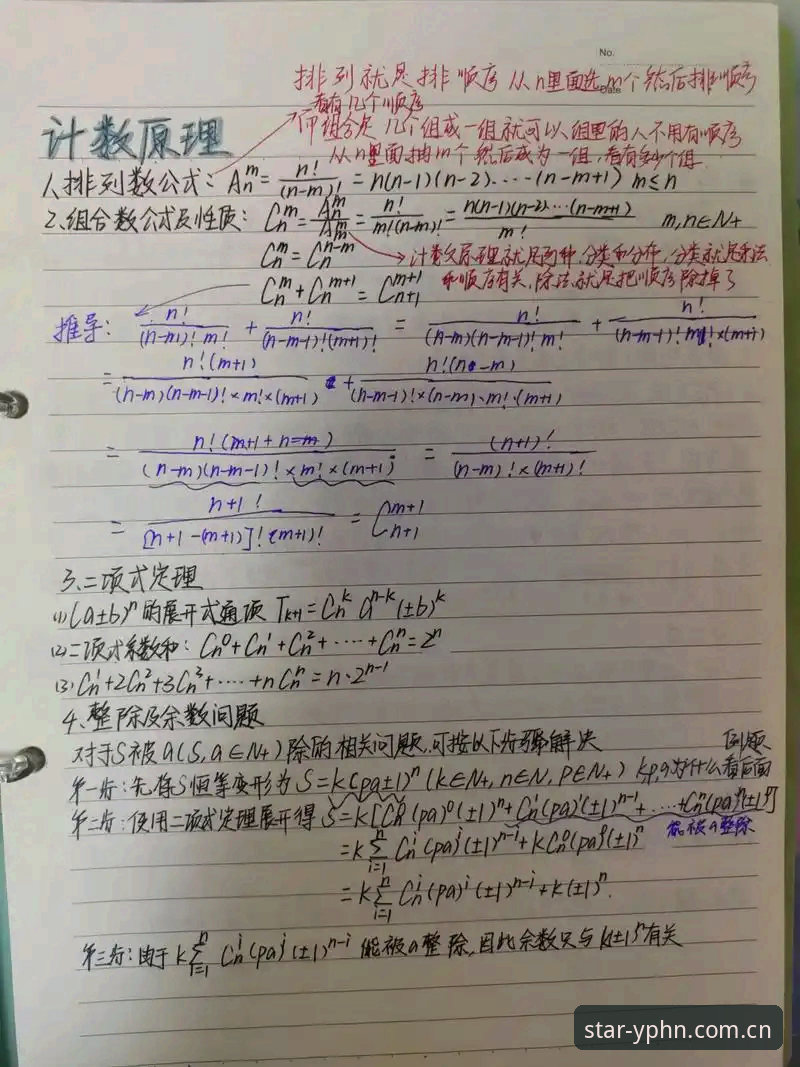 No.
Date
排列就是排顺序 从n里面选m个然后排顺序
看有几个顺序
组合是 几个组成一组就可以 组里的人不用有顺序
从n里面抽m个然后成为一组,看有多少个组
计数原理
1.排列数公式: Aₙᵐ = n!/(n-m)! = n(n-1)(n-2)....(n-m+1) m≤n
2.组合数公式及性质: Cₙᵐ = Aₙᵐ/Aₘᵐ = n!/m!(n-m)! = n(n-1)(n-2)...(n-m+1)/m! m,n∈N+
Cₙᵐ = Cₙⁿ⁻ᵐ
计数原理就是两种,分类和分步,分类就是
和顺序有关,除法就是把顺序除掉了
Cₙᵐ + Cₙᵐ⁺¹ = Cₙ₊₁ᵐ⁺¹
推导: n!/(n-m)!m! + n!/(n-m-1)!(m+1)! = n!/(n-m)(n-m-1)!m! + n!/(n-m-1)!m!×(m+1)
= n!(m+1)/(n-m)(n-m-1)!×m!×(m+1) + n!(n-m)/(n-m-1)!×(n-m)×m!·(m+1)
= n!(m+1+n-m)/(n-m)(n-m-1)!×m!×(m+1) = (n+1)!/(n-m)!×(m+1)!
= n+1!/[n+1-(m+1)]!(m+1)! = Cₙ₊₁ᵐ⁺¹
3、二项式定理
(1)(a±b)ⁿ的展开式通项 Tₖ₊₁ = Cₙᵏ aⁿ⁻ᵏ(±b)ᵏ
(2)二项式系数和: Cₙ⁰+Cₙ¹+Cₙ²+....+Cₙⁿ=2ⁿ
(3) Cₙ¹+2Cₙ²+3Cₙ³+....+nCₙⁿ=n·2ⁿ⁻¹
4、整除及余数问题
对于S被a(S,a∈N+)除的相关问题,可按以下步骤解决 例题
第一步:先将S恒等变形为 S=k(pa±1)ⁿ(k∈N+,n∈N,p∈N+) k,p,a为什么看后面
第二步:使用二项式定理展开得 S=k[Cₙ⁰(pa)⁰(±1)ⁿ+Cₙ¹(pa)¹(±1)ⁿ⁻¹+....+Cₙⁿ(pa)ⁿ(±1)⁰]
能被a整除
=k∑ᵢ₌₁ⁿ Cₙⁱ(pa)ⁱ(±1)ⁿ⁻ⁱ+kCₙ⁰(pa)⁰(±1)ⁿ
=k∑ᵢ₌₁ⁿ Cₙⁱ(pa)ⁱ(±1)ⁿ⁻ⁱ+k(±1)ⁿ.
第三步:由于 k∑ᵢ₌₁ⁿ Cₙⁱ(pa)ⁱ(±1)ⁿ⁻ⁱ 能被a整除,因此余数只与k(±1)ⁿ有关
star-yphn.com.cn